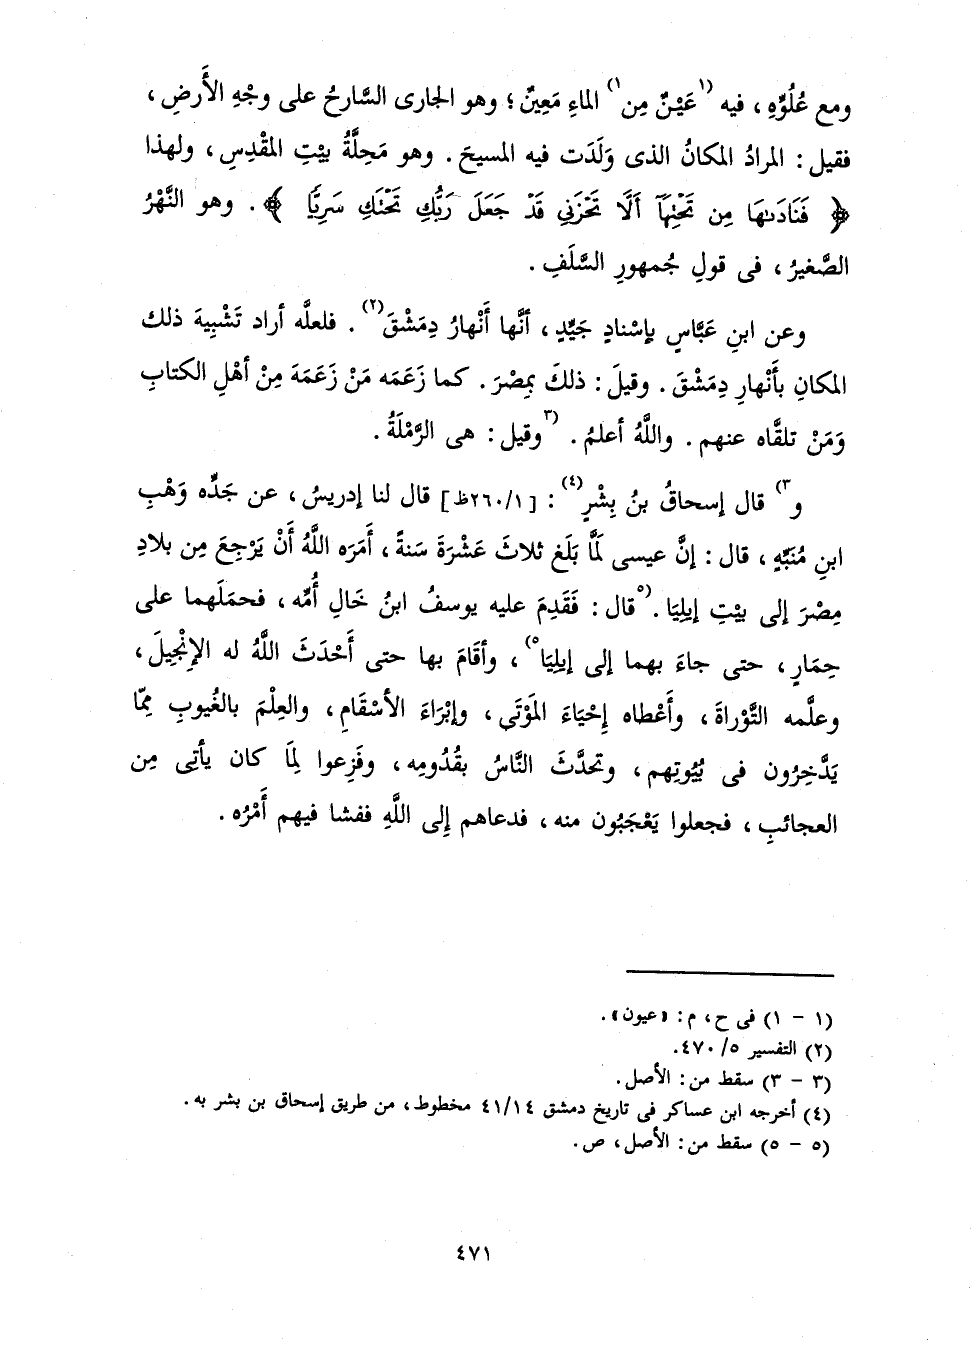 ومع عُلُوِّهِ ، فيه (١عَيْنٌ مِن١) الماءِ مَعِينٌ ؛ وهو الجارى السَّارحُ على وجْهِ الأَرضِ ،
فقيل : المرادُ المكانُ الذى وَلَدَت فيه المسيحَ . وهو مَحِلَّةُ بيْتِ المقْدِسِ ، ولهذا
﴿ فَنَادَىٰهَا مِن تَحْتِهَآ أَلَّا تَحْزَنِى قَدْ جَعَلَ رَبُّكِ تَحْتَكِ سَرِيًّا ﴾ . وهو النَّهْرُ
الصَّغيرُ ، فى قولِ جُمهورِ السَّلَفِ .
وعن ابنِ عَبَّاسٍ بإسْنادٍ جَيِّدٍ ، أنَّها أَنْهارُ دِمَشْقَ(٢) . فلعلَّه أراد تَشْبِيهَ ذلك
المكانِ بأَنْهارِ دِمَشْقَ . وقيلَ : ذلكَ بمِصْرَ . كما زَعَمَه مَنْ زَعَمَهَ مِنْ أهْلِ الكتابِ
وَمَنْ تلقَّاه عنهم . واللَّهُ أعلمُ . (٣وقيل : هى الرَّمْلَةُ .
و٣) قال إسحاقُ بنُ بِشْرٍ(٤) : [٢٦٠/١ظ] قال لنا إدريسُ ، عن جَدِّه وَهْبِ
ابنِ مُنَبِّهٍ ، قال : إنَّ عيسى لَمَّا بَلَغ ثلاثَ عَشْرَةَ سَنةً ، أَمَرَه اللَّهُ أَنْ يَرْجِعَ مِن بلادِ
مِصْرَ إلى بيْتِ إيلِيَا . (٥قال : فَقَدِمَ عليه يوسفُ ابنُ خَالِ أُمِّه ، فحمَلَهما على
حِمَارٍ ، حتى جاءَ بهما إلى إيلِيَا٥) ، وأقَامَ بها حتى أَحْدَثَ اللَّهُ له الإنْجِيلَ ،
وعلَّمه التَّوْراةَ ، وأَعْطاه إِحْيَاءَ المَوْتَى ، وإبْرَاءَ الأسْقَامِ ، والعِلْمَ بالغُيوبِ مِمَّا
يَدَّخِرُون فى بُيُوتِهم ، وتحدَّثَ النَّاسُ بقُدُومِه ، وفَزِعوا لِمَا كان يأتِى مِن
العجائبِ ، فجعلوا يَعْجَبُون منه ، فدعاهم إلى اللَّهِ ففشا فيهم أَمْرُه .
(١ - ١) فى ح ، م : «عيون» .
(٢) التفسير ٥/ ٤٧٠.
(٣ - ٣) سقط من : الأصل .
(٤) أخرجه ابن عساكر فى تاريخ دمشق ٤١/١٤ مخطوط ، من طريق إسحاق بن بشر به .
(٥ - ٥) سقط من : الأصل ، ص .
٤٧١